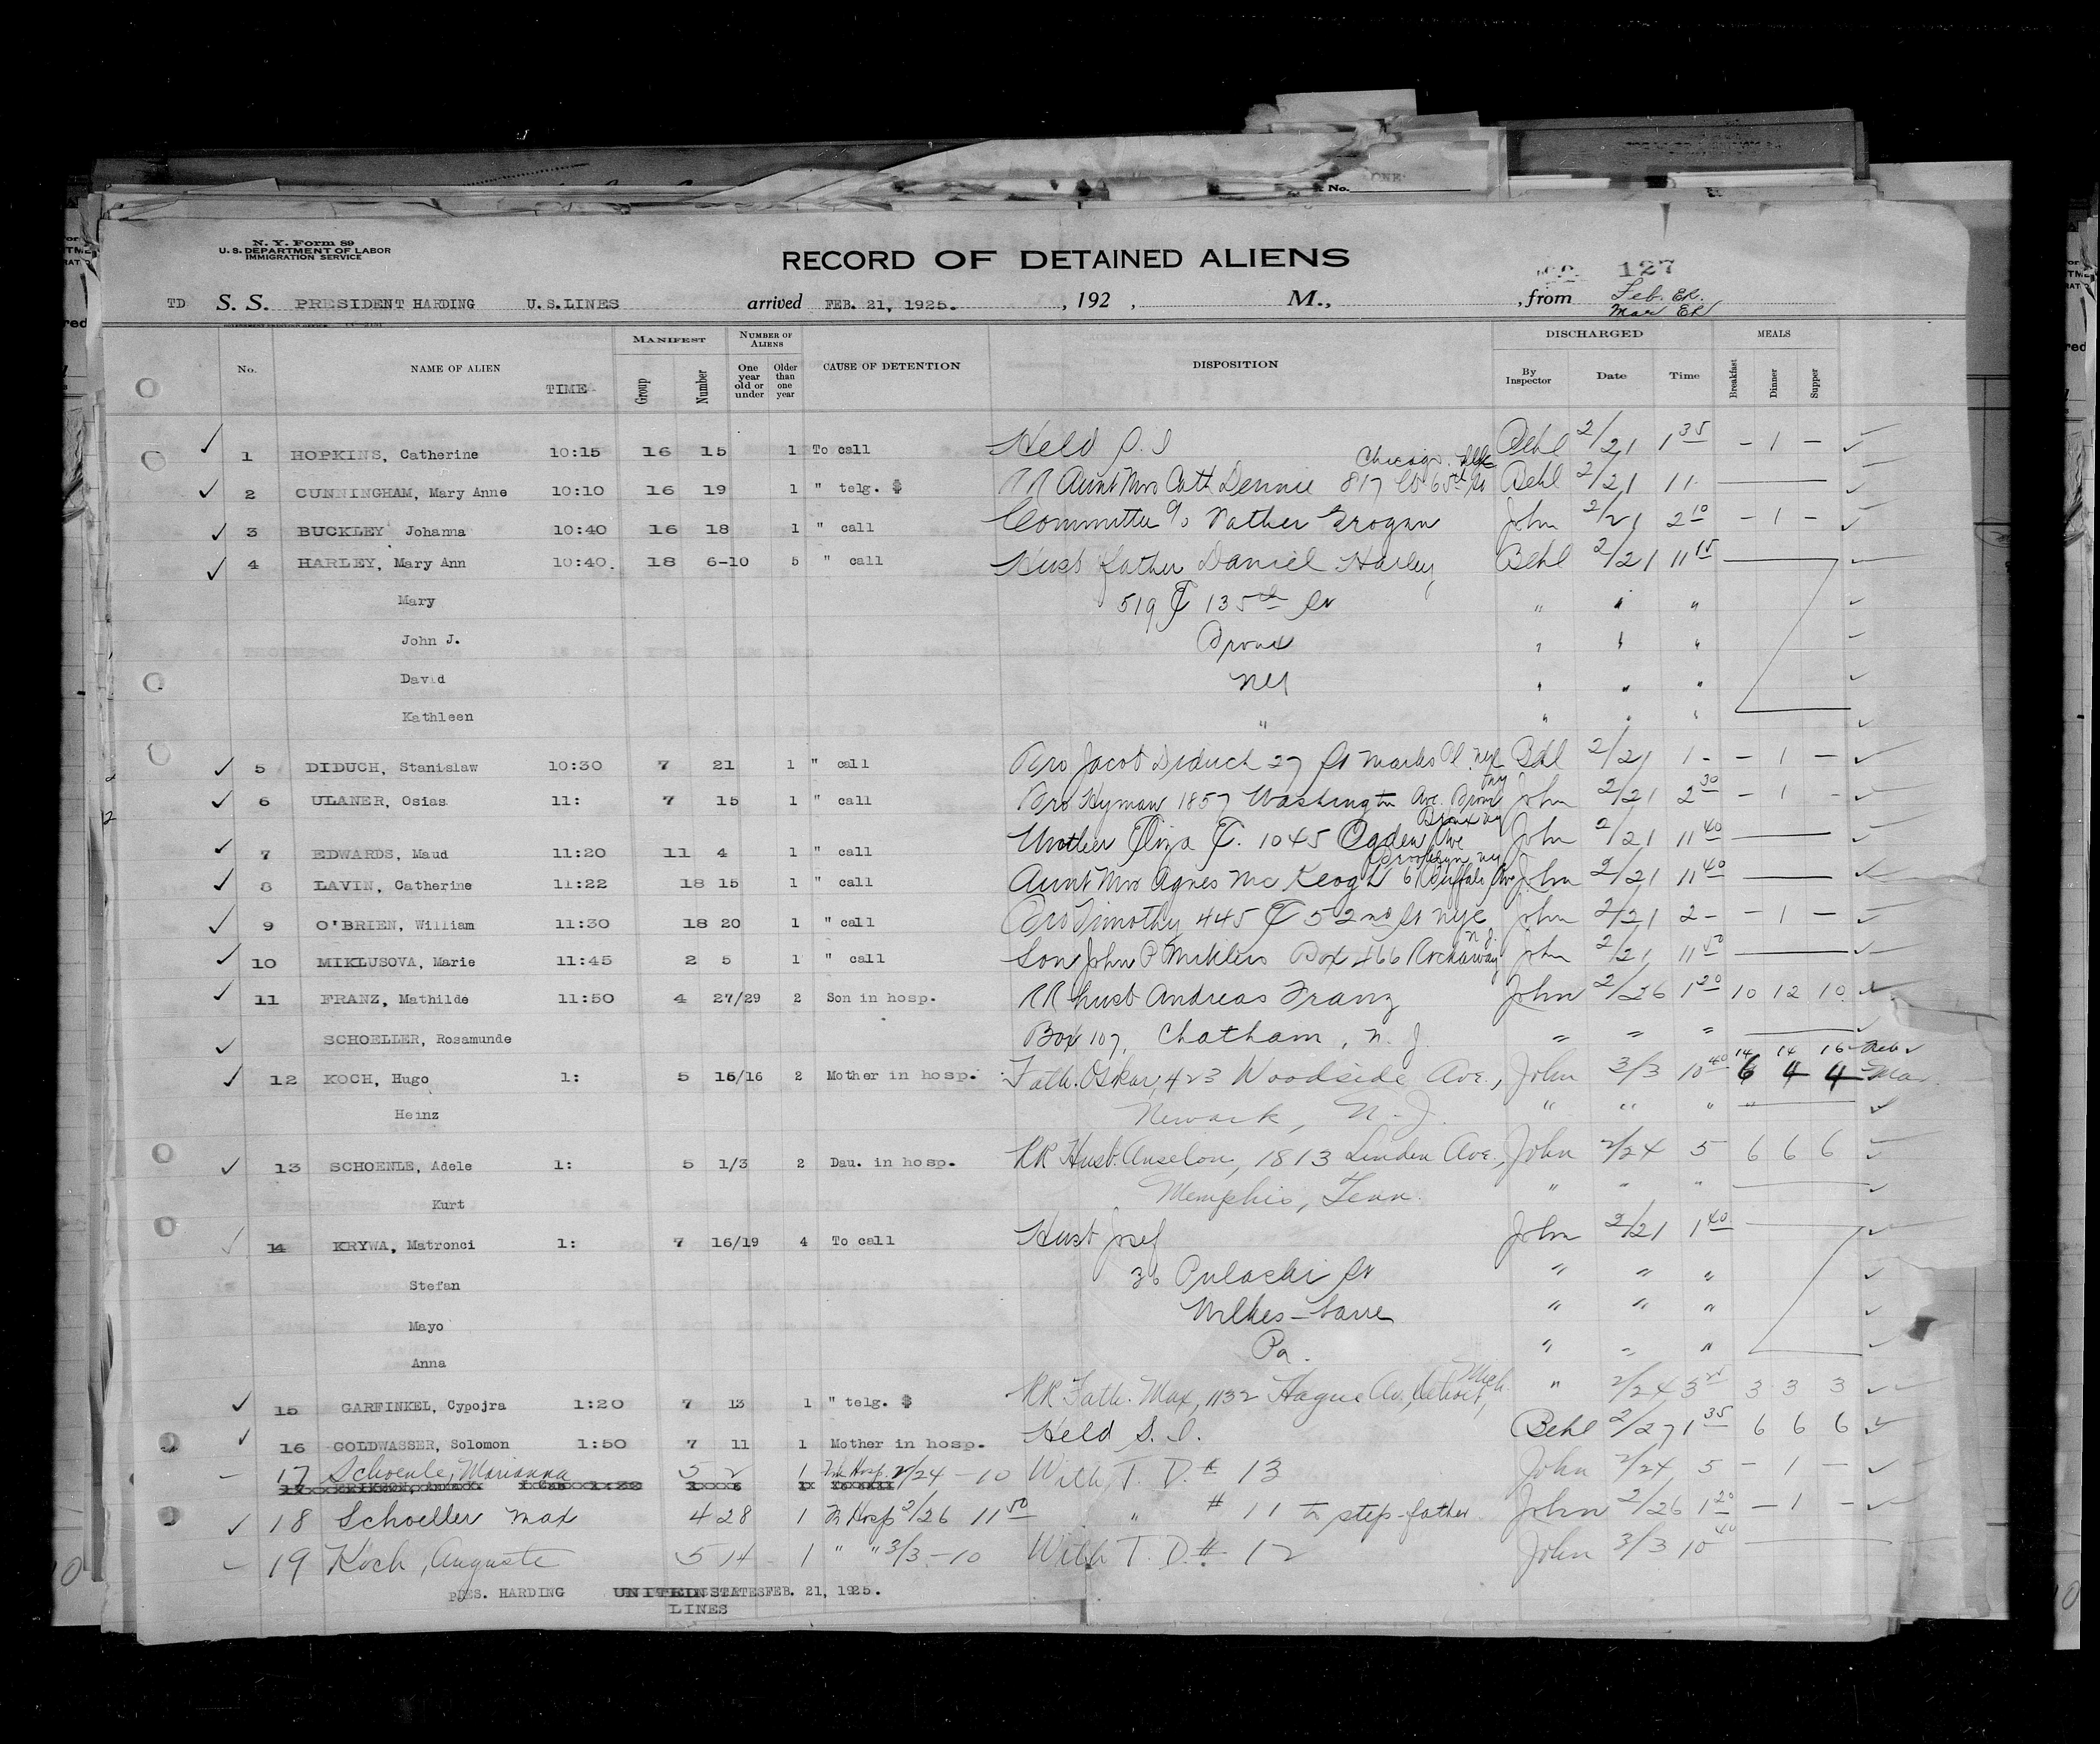 N. Y. Form 89
U. S. DEPARTMENT OF LABOR
IMMIGRATION SERVICE
RECORD OF DETAINED ALIENS
127
TD S. S. PRESIDENT HARDING U.S.LINES arrived FEB. 21, 1925. , 192 , M., , from Feb. ER.
Mar ER
No. NAME OF ALIEN TIME MANIFEST Group Number NUMBER OF ALIENS One year old or under Older than one year CAUSE OF DETENTION DISPOSITION DISCHARGED By Inspector Date Time MEALS Breakfast Dinner Supper
1 HOPKINS, Catherine 10:15 16 15 1 To call Held S. I Behl 2/21 1 35 - 1 -
2 CUNNINGHAM, Mary Anne 10:10 16 19 1 " telg. $ RR Aunt Mrs Cath Dennie 817 W 65th St Chicago Behl 2/21 11
3 BUCKLEY Johanna 10:40 16 18 1 " call Committee % Father Grogan John 2/21 2 10 - 1 -
4 HARLEY, Mary Ann 10:40. 18 6-10 5 " call Husb father Daniel Harley Behl 2/21 11 15
Mary 519 E 135th St " " "
John J. Bronx " " "
David NY " " "
Kathleen " " " "
5 DIDUCH, Stanislaw 10:30 7 21 1 " call Bro Jacob Diduch 27 St Marks Pl. nyc Behl 2/21 1 - - 1 -
6 ULANER, Osias 11: 7 15 1 " call Bro Hyman 1857 Washington Ave. Bronx ny John 2/21 2 30 - 1 -
7 EDWARDS, Maud 11:20 11 4 1 " call Mother Eliza E. 1045 Ogden Ave Bronx ny John 2/21 11 40
8 LAVIN, Catherine 11:22 18 15 1 " call Aunt Mrs Agnes McKeogh Buffalo Ave Brooklyn ny John 2/21 11 40
9 O'BRIEN, William 11:30 18 20 1 " call Bro Timothy 445 E 52nd St nyc John 2/21 2 - - 1 -
10 MIKLUSOVA, Marie 11:45 2 5 1 " call Son John P Miklus Box 466 Rockaway n.J. John 2/21 11 50
11 FRANZ, Mathilde 11:50 4 27/29 2 Son in hosp. RR husb Andreas Franz John 2/26 1 20 10 12 10
SCHOELLER, Rosamunde Box 107, Chatham, n. J. " " "
14 14 16 Feb
12 KOCH, Hugo 1: 5 15/16 2 Mother in hosp. Fath. Oskar, 423 Woodside Ave., John 3/3 10 40 6 4 4 Mar
Heinz Newark, N. J. " " " "
13 SCHOENLE, Adele 1: 5 1/3 2 Dau. in hosp. RR Husb. Anselon, 1813 Linden Ave., John 2/24 5 6 6 6
Kurt Memphis, Tenn. " " "
14 KRYWA, Matronci 1: 7 16/19 4 To call Husb Josef John 2/21 1 40
Stefan 36 Pulaski St " " "
Mayo Wilkes-Barre " " "
Anna Pa. " " "
15 GARFINKEL, Cypojra 1:20 7 13 1 " telg. $ RR Fath. Max, 1132 Hague Av., Detroit, Mich. " 2/24 3 3 3 3
16 GOLDWASSER, Solomon 1:50 7 11 1 Mother in hosp. Held S. I. Behl 2/27 1 35 6 6 6
17 Schoenle, Marianna 5 2 1 Hosp. 2/24 - 10 With T. D. # 13 John 2/24 5 - 1 -
18 Schoeller Max 4 28 1 Hosp 2/26 11 50 " # 11 to step-father John 2/26 1 20 - 1 -
19 Koch, Auguste 5 14 1 " " 3/3 - 10 With T. D. # 12 John 3/3 10 40
PRES. HARDING UNITED STATES FEB. 21, 1925.
LINES